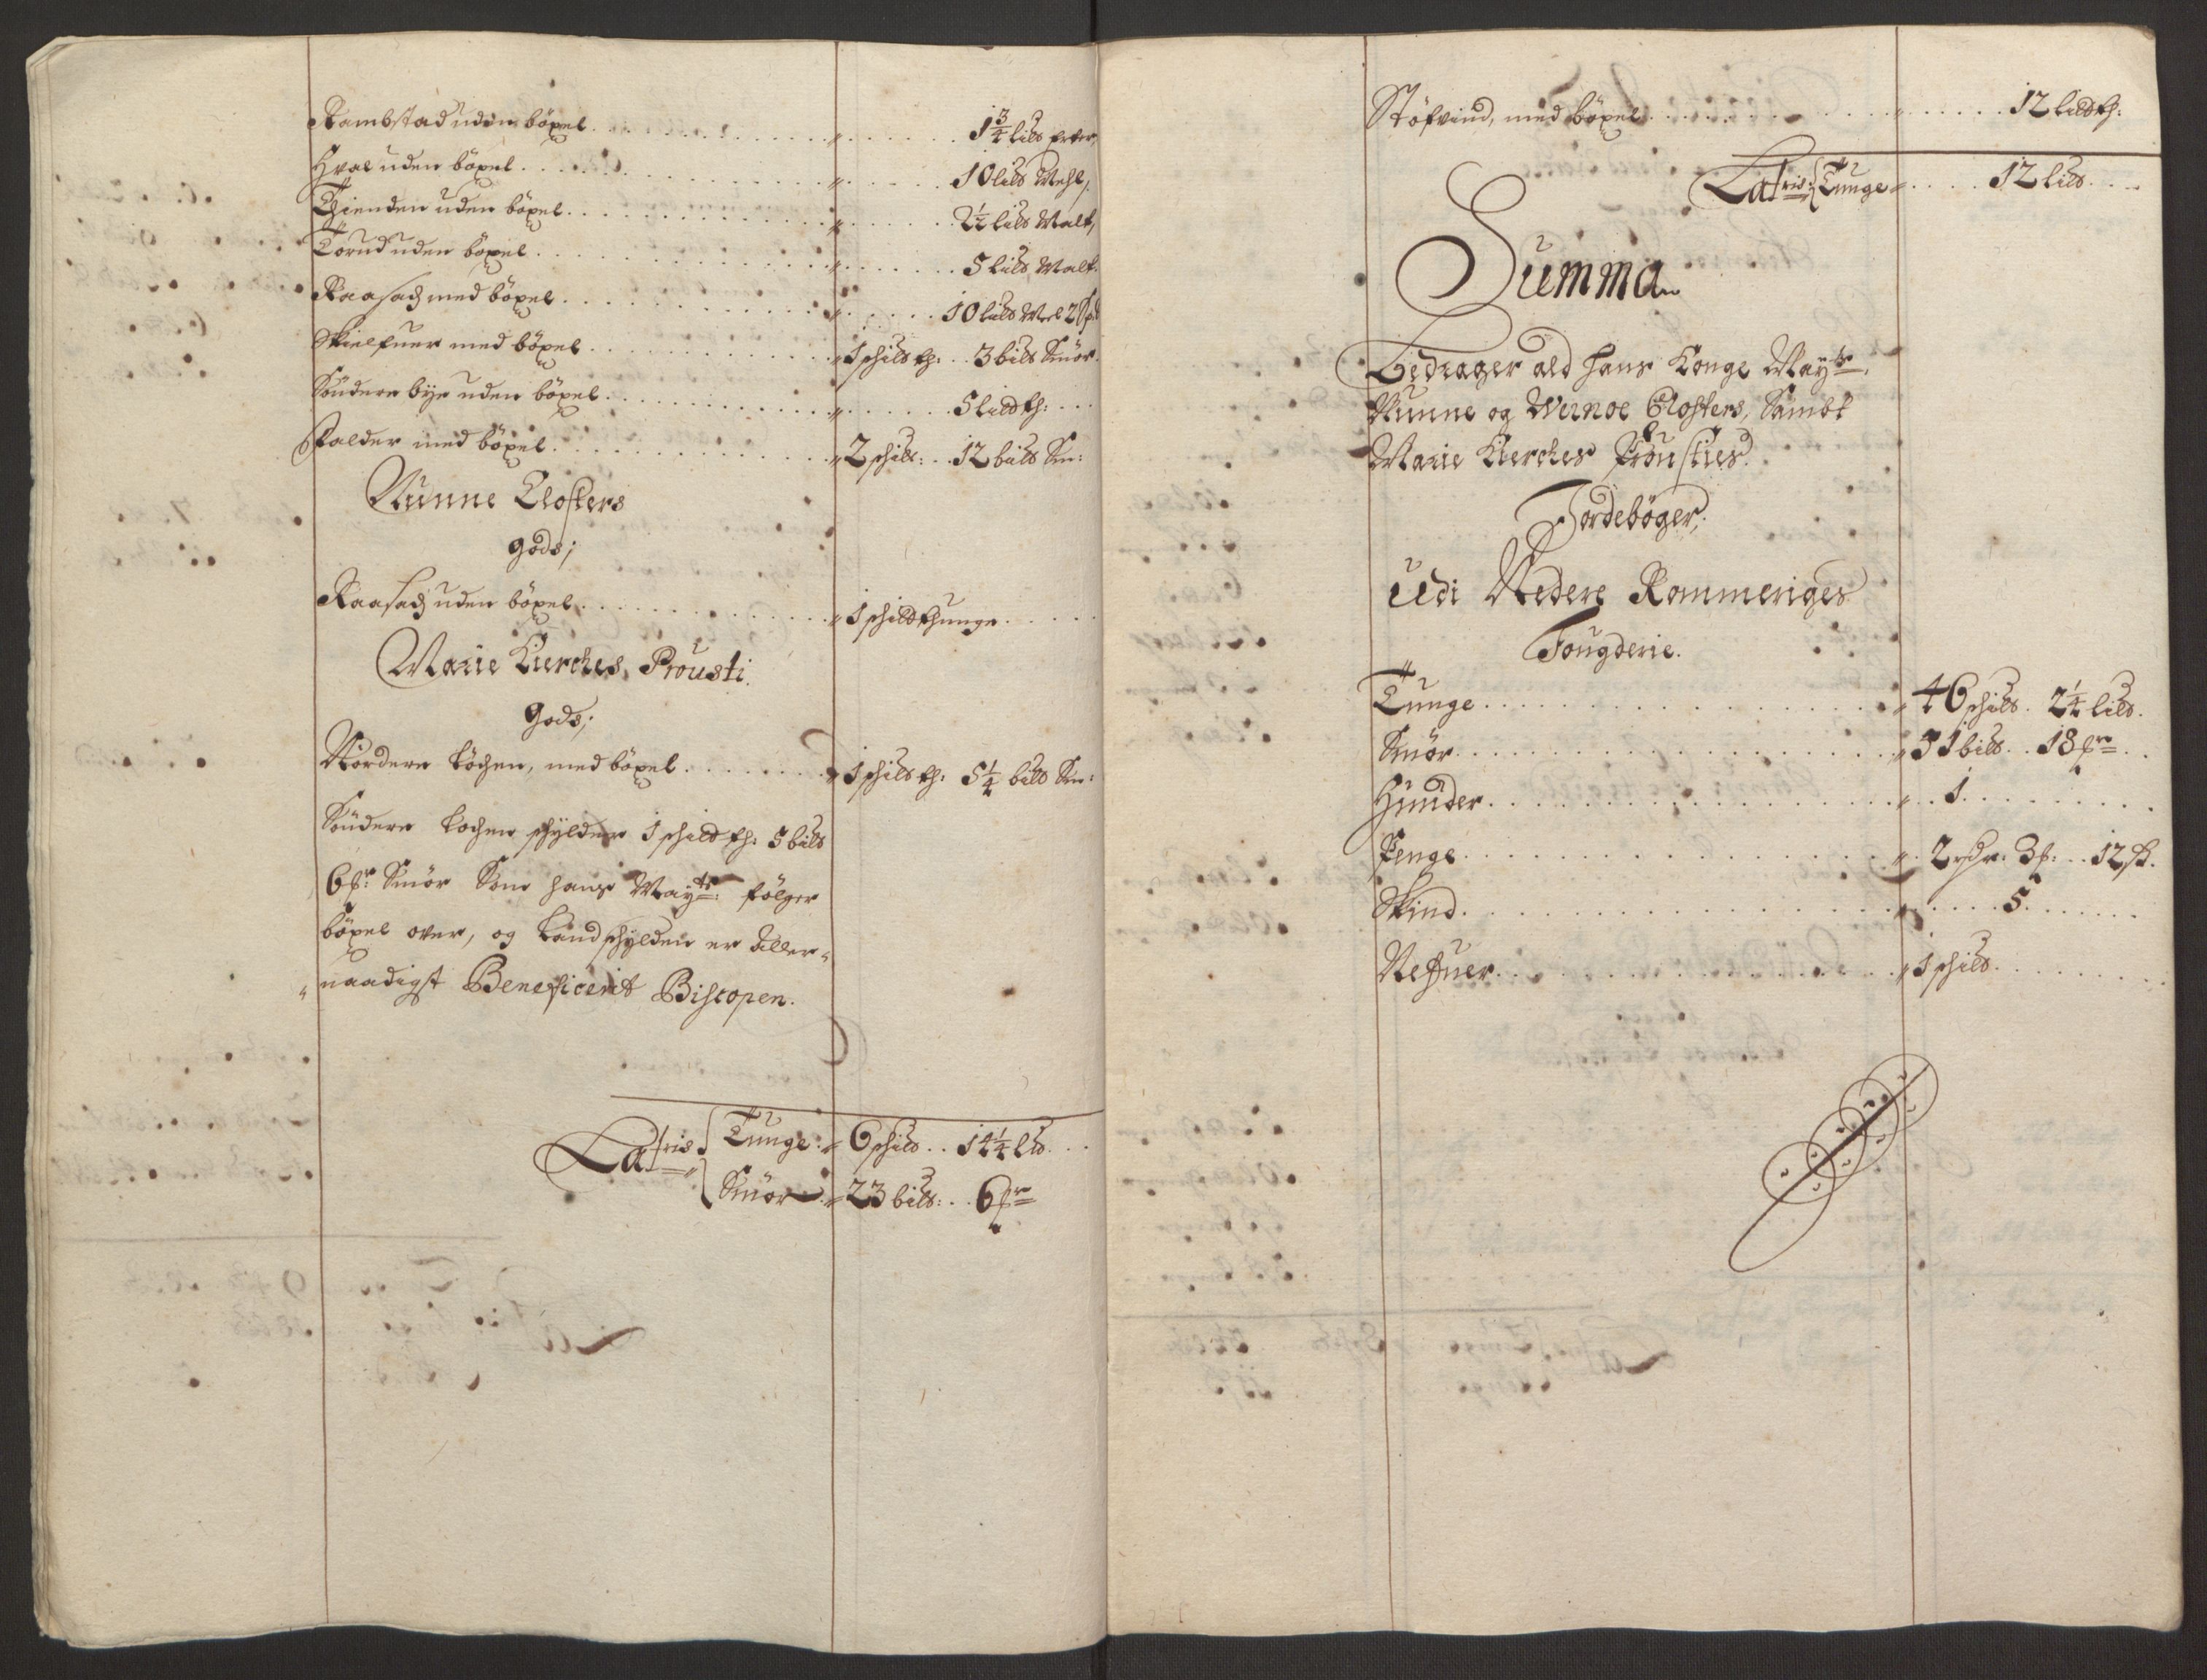 Rambstad uden böxel . . . . . . . . . . 1 3/4 lild
Hval uden böxel . . . . . . . . . . 10 lild Mehl,
Thienden uden böxel . . . . . . . . . . 2 1/2 lild Malt,
Torud uden böxel . . . . . . . . . . 5 lild Malt.
Raasach med böxel . . . . . . . . . . 10 lild Mel
Skielfuer med böxel . . . . . . . . . . 1 schild th: . . 3 bild Smör.
Söndere bye uden böxel . . . . . . . . . . 5 lild th: . . .
Falder med böxel . . . . . . . . . . 2 schild: . . 12 bild Sm:
Nunne Closters
gods;
Raasach uden böxel . . . . . . . . . . 1 schild thunge . . . . .
Marie Kierches Prousti
Gods;
Nordere Kochen, med böxel . . . . . . . 1 schild th: 5 1/4 bild Sm:
Söndere Kochen schylder 1 schild th: 5 bild
6 fr: Smör Som hans Mayts: fölger
böxel over, og Landschylden er aller-
naadigst Beneficerit Biscopen.
Latris Tunge . 6 schild . . 14 1/4 lld. . .
Smör . 23 bild: . . 6 fr
Stöfvind, med böxel . . . . . . . . . . 12 lild th:
Latris: Tunge . . . . . 12 lild. . . .
Summa
Bedrager ald hans Konge Mayts,
Nunne og Wernoe Closters, Sambt
Marie Kierches Prousties
Jordeböger;
Udi Nedere Rommeriges
Fougderie.
Tunge . . . . . . . . . . 46 schild. 2 1/4 lild.
Smör . . . . . . . . . . 31 bild. . 18 fr . .
Hunder . . . . . . . . . . 1 . . . . . . .
Penge . . . . . . . . . . 2 rdr. 3 f: . . 12 sk.
Skind . . . . . . . . . . 5 . . . . . .
Nefuer . . . . . . . . . . 1 schild. . . . . . .